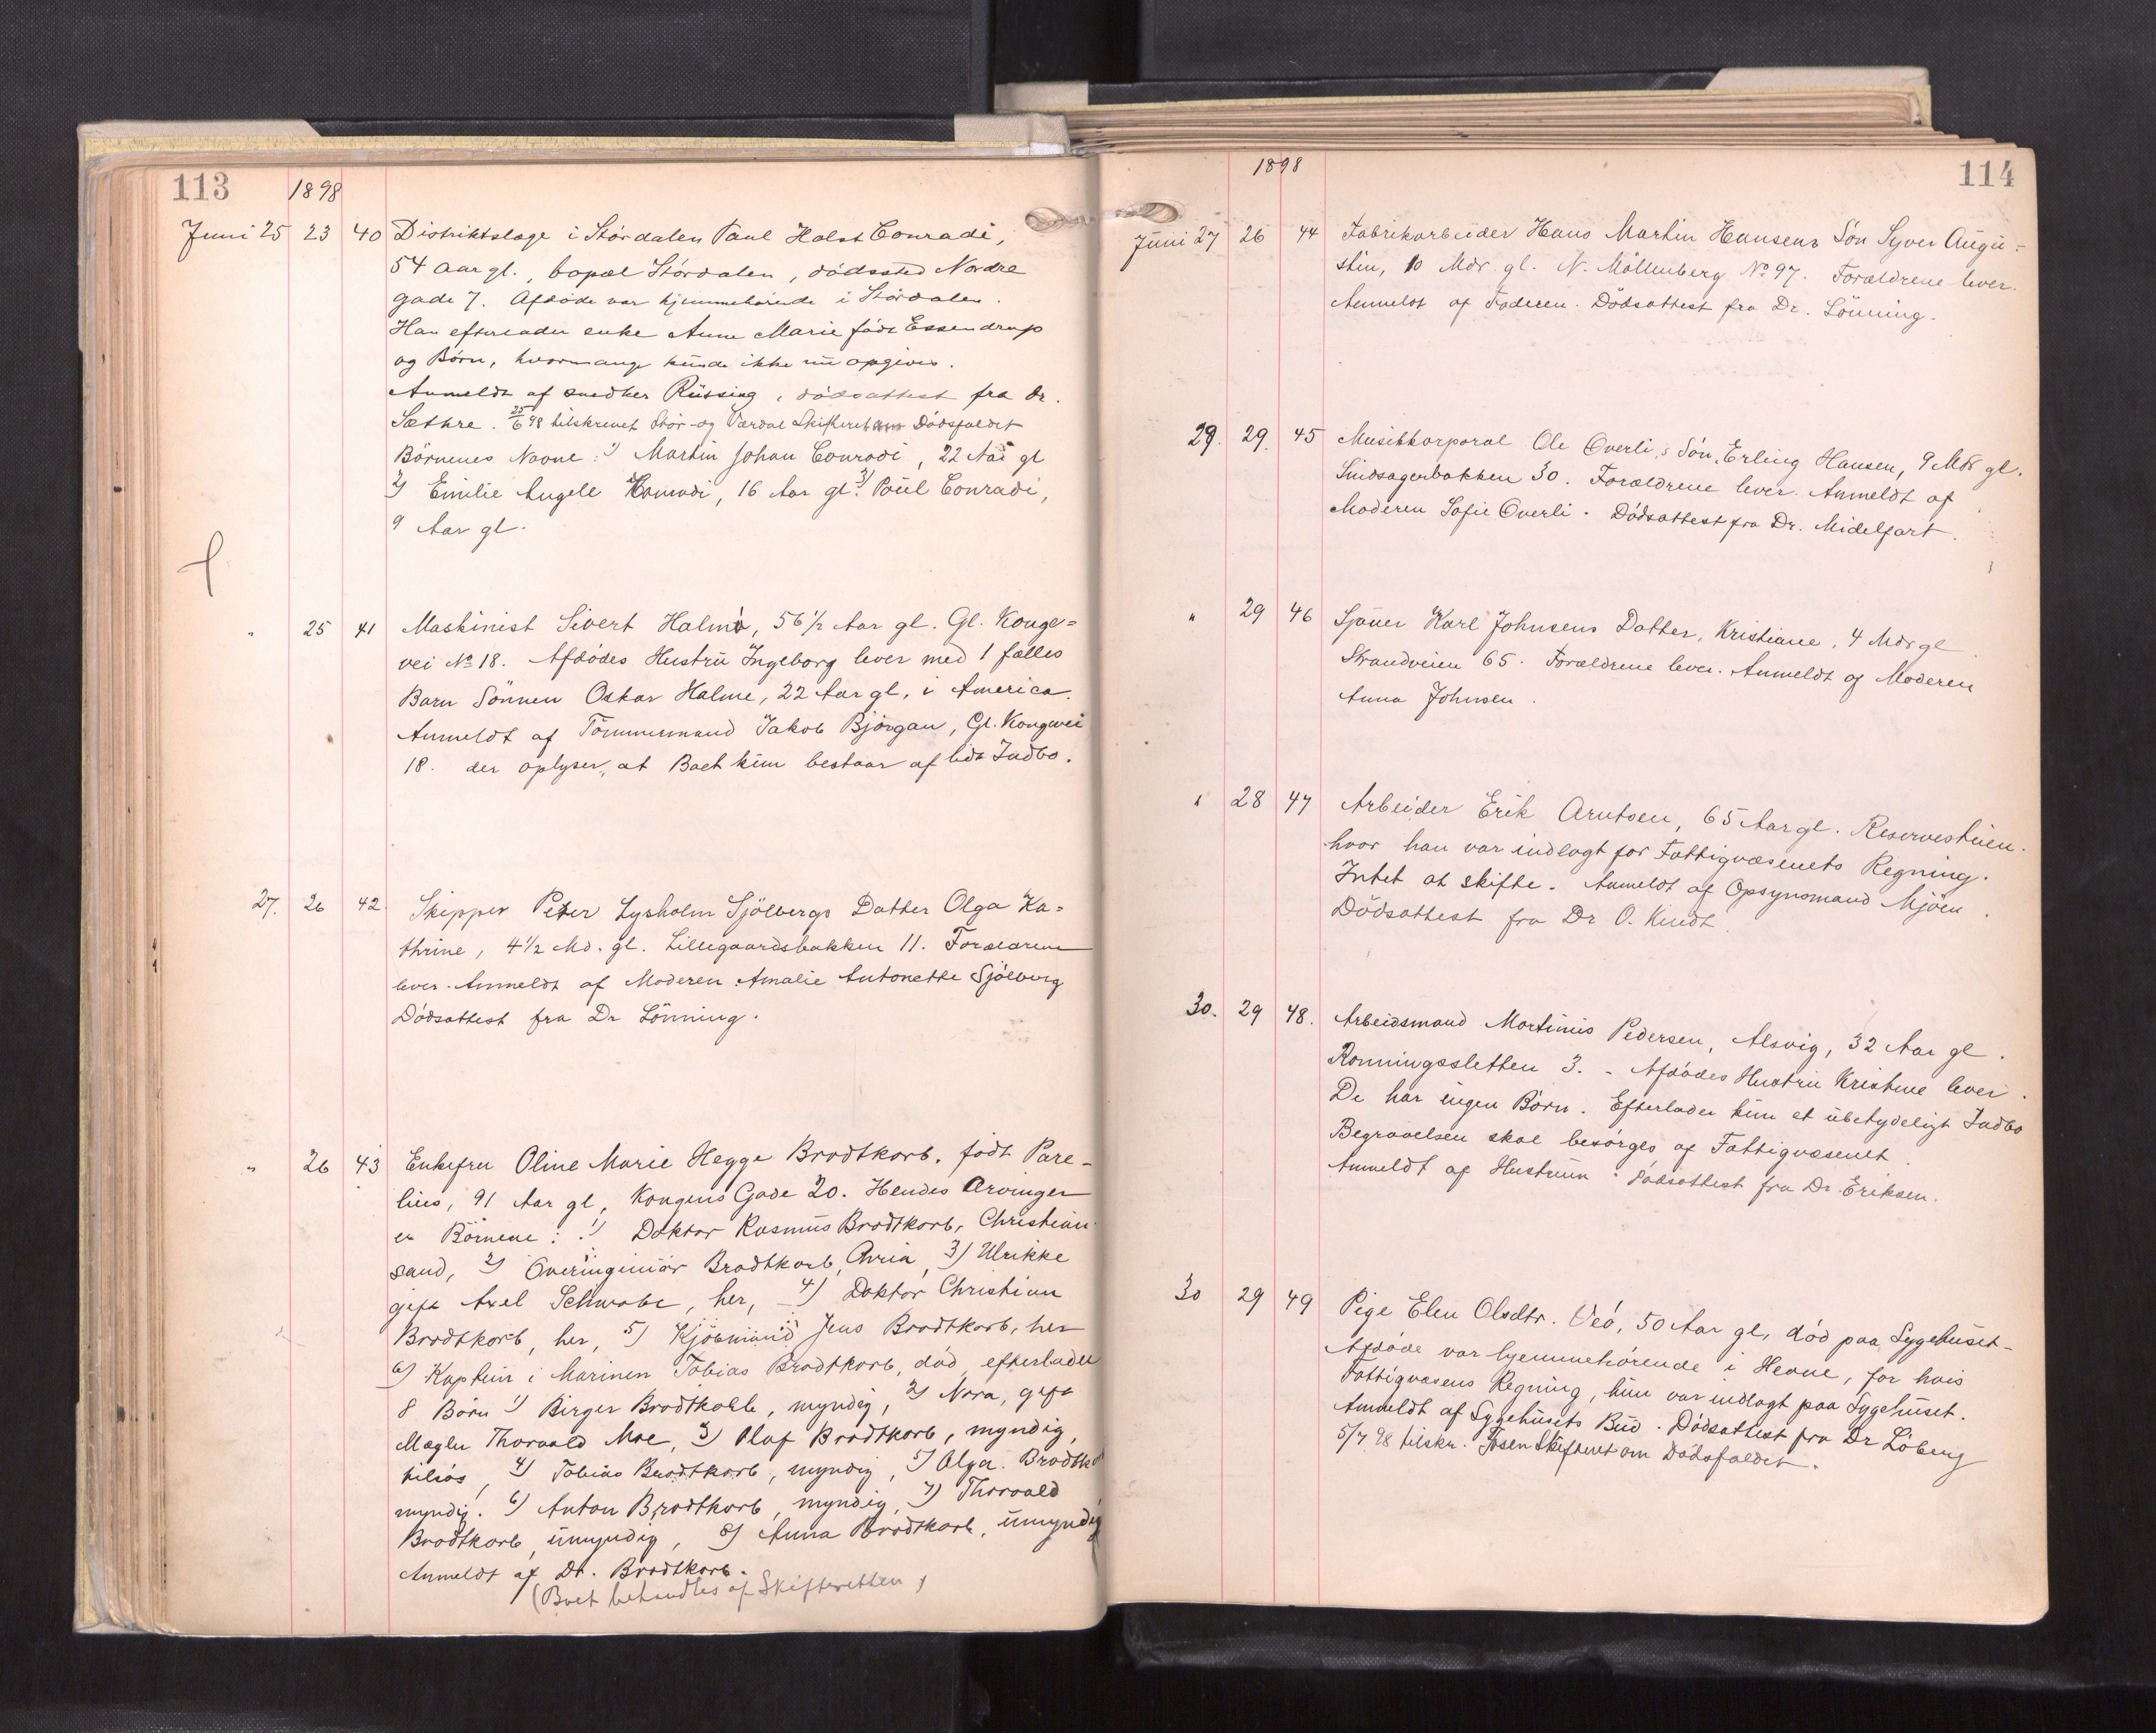 113 1898
Juni 25 23 40 Distriktslæge i Stördalen Paul Holst Conradi,
54 Aar gl., bopæl Stördalen, dödssted Nordre
gade 7. Afdöde var hjemmehörende i Stördalen.
Han efterlader enke Anne Marie födt Essendrup
og Börn, hvormange kunde ikke nu opgives.
Anmeldt af snedker Rüssing, dödsattest fra Dr.
Sæthre. 25/6 98 tilskrevet Stör- og Værdal Skifteret om Dödsfaldet
Börnenes Navne: 1) Martin Johan Conradi, 22 Aar gl
2) Emilie Angell Conradi, 16 Aar gl. 3) Paul Conradi,
9 Aar gl.
" 25 41 Maskinist Sivert Halmö, 56 1/2 Aar gl. Gl. Konge=
vei No 18. Afdödes Hustru Ingeborg lever med 1 fælles
Barn Sönnen Oskar Halme, 22 Aar gl, i America.
Anmeldt af Tömmermand Jakob Bjórgan, Gl. Kongevei
18. der oplyser, at Boet kun bestaar af lidt Indbo.
27. 26 42. Skipper Peter Lysholm Sjölbergs Datter Olga Ka=
thrine, 4 1/2 Md. gl. Lillegaardsbakken 11. Forældrene
lever. Anmeldt af Moderen Amalie Antonette Sjölberg
Dödsattest fra Dr Lönning.
" 26 43 Enkefru Oline Marie Hegge Brodtkorb, födt Pare-
lius, 91 Aar gl, Kongens Gade 20. Hendes Arvinger
er Börnene: 1) Doktor Rasmus Brodtkorb, Christian-
sand, 2) Overingeniör Brodtkorb, 3) Ulrikke
gift Axel Schwabe, her, 4) Doktor Christian
Brodtkorb, her, 5) Kjöbmand Jens Brodtkorb, her
6) Kaptein i Marinen Tobias Brodtkorb, död, efterlader
8 Börn 1) Birger Brodtkorb, myndig, 2) Nora, gift
Mægler Thorvald Moe, 3) Olaf Brodtkorb, myndig,
tilsös, 4) Tobias Brodtkorb, myndig, 5) Olga Brodtko
myndig. 6) Anton Brodtkorb, myndig, 7) Thorvald
Brodtkorb, umyndig, 8) Anna Brodtkorb, umyndig
Anmeldt af Dr. Brodtkorb.
(Boet behandles af Skifteretten)
1898 114
Juni 27 26 44 Fabrikarbeider Hans Martin Hansens Sön Syver Augu-
stin, 10 Mdr. gl. N. Möllenberg No 97. Forældrene lever.
Anmeldt af Faderen. Dödsattest fra Dr. Lönning.
29. 29. 45 Musikkorporal Ole Overli,s Sön, Erling Hansen, 9 Mdr gl.
Sindsagerbakken 30. Forældrene lever. Anmeldt af
Moderen Sofie Overli. Dödsattest fra Dr. Midelfart.
" 29 46 Sjauer Karl Johnsens Datter, Kristiane, 4 Mdr gl
Strandveien 65. Forældrene lever. Anmeldt af Moderen
Anna Johnsen.
" 28 47 Arbeider Erik Arntsen, 65 Aar gl. Reservestuen.
hvor han var indlagt for Fattigvæsenets Regning.
Intet at skifte. Anmeldt af Opsynsmand Mjöen.
Dödsattest fra Dr O. Kindt.
30. 29 48. Arbeidsmand Martinus Pedersen, Alsvig, 32 Aar gl.
Rönningssletten 3. - Afdödes Hustru Kristine lever.
De har ingen Börn. Efterlader kun et ubetydeligt Indbo
Begravelsen skal besörges af Fattigvæsenet.
Anmeldt af Hustruen. Dödsattest fra Dr. Eriksen.
30 29 49 Pige Elen Olsdtr. Veö, 50 Aar gl, död paa Sygehuset-
Afdöde var hjemmehörende i Hevne, for hvis
Fattigvæsens Regning, hun var indlagt paa Sygehuset.
Anmeldt af Sygehusets Bud. Dödsattest fra Dr Löberg
5/7 98 tilskr. Fosen Skifteret om Dödsfaldet.